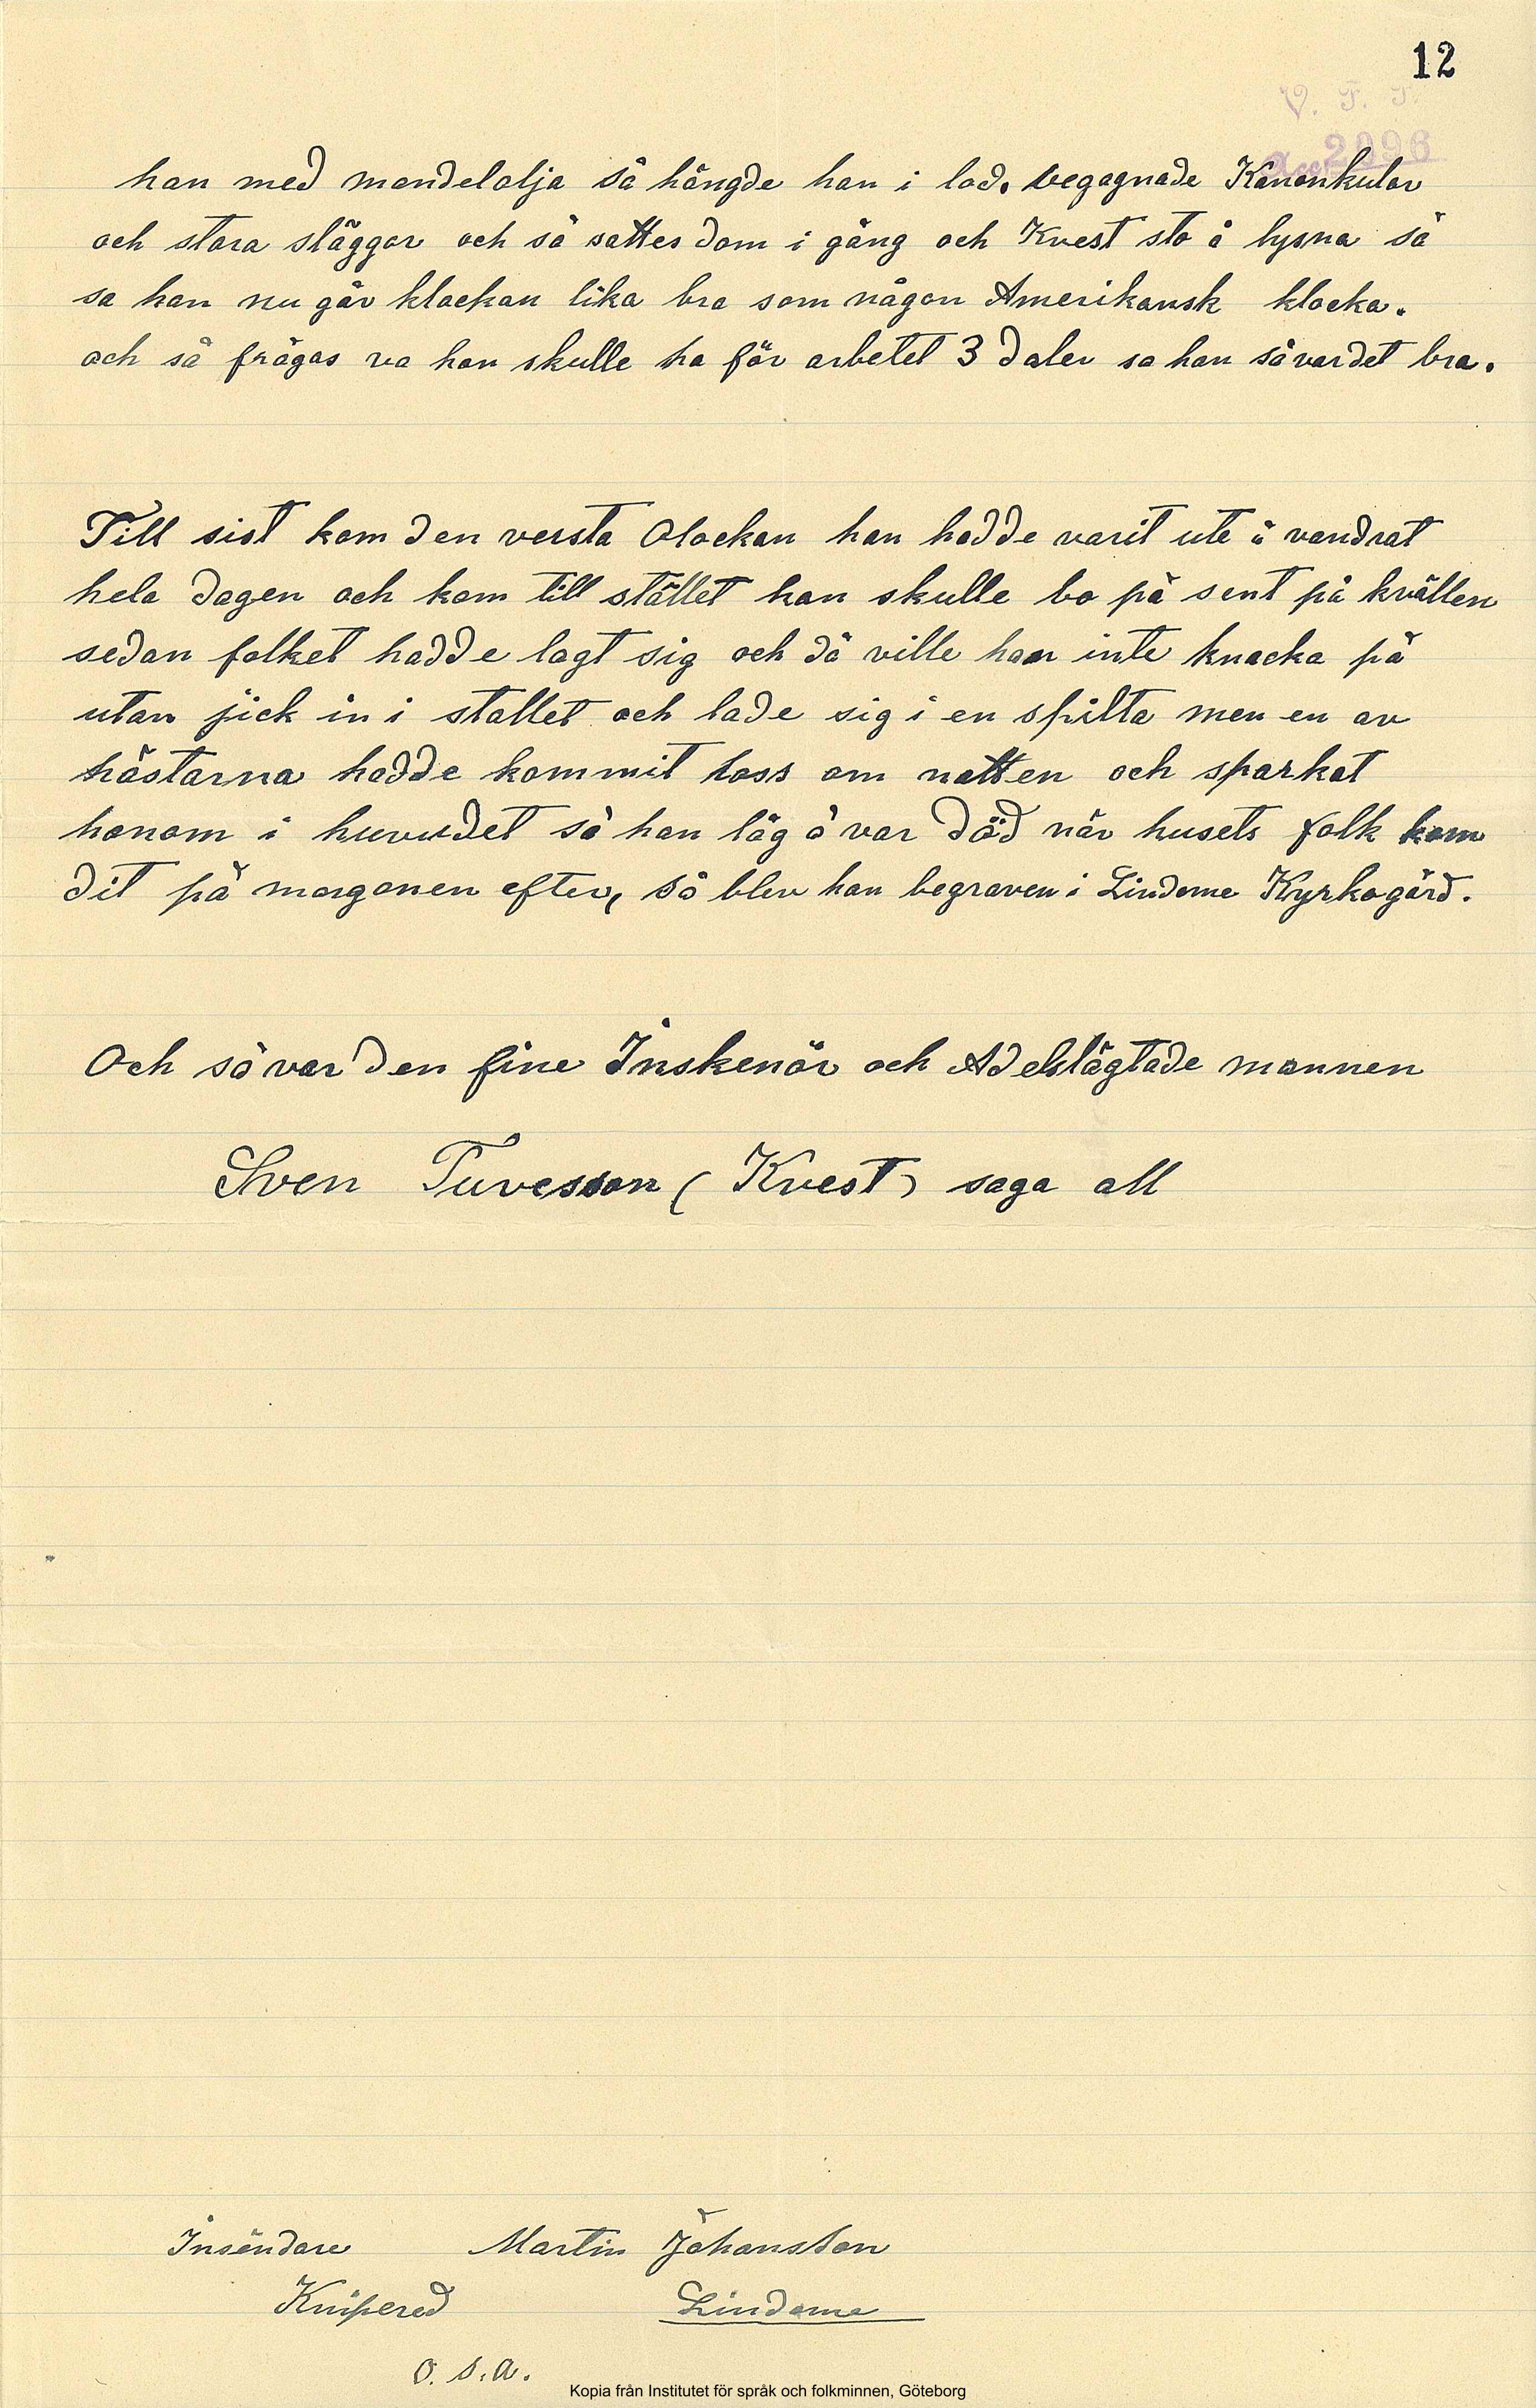 12
V. F. F.
Acc 2096
han med mandelolja så hängde han i lod. begagnade Kanonkulor
och stora släggor och så sattes dom i gång och Kvest sto å lysna så
sa han nu går klockan lika bra som någon Amerikansk klocka.
och så frågas va han skulle ha för arbetet 3 daler sa han så var det bra.
Till sist kom den versta Olockan han hadde varit ute å vandrat
hela dagen och kom till stället han skulle bo på sent på kvällen
sedan folket hadde lagt sig och då ville han inte knacka på
utan jick in i stallet och lade sig i en spilta men en av
hästarna hadde kommit loss om natten och sparkat
honom i huvudet så han låg å var död när husets folk kom
dit på morgonen efter, så blev han begraven i Lindome Kyrkogård.
Och så var den fine Inskenör och Adelslägtade mannen
Sven Tuvesson (Kvest) saga all
Insändare Martin Johansson
Knipered Lindome
o. s. a.
Kopia från Institutet för språk och folkminnen, Göteborg